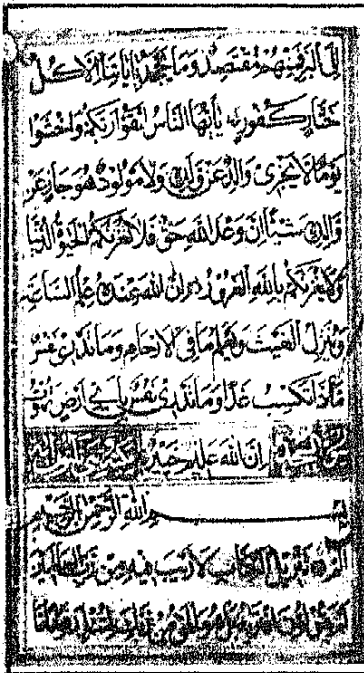 إلى البر فمنهم مقتصد وما يجحد بآياتنا إلا كل
ختار كفور يا أيها الناس اتقوا ربكم واخشوا
يوما لا يجزى والد عن ولده ولا مولود هو جاز عن
والده شيئا إن وعد الله حق فلا تغرنكم الحيوة الدنيا
ولا يغرنكم بالله الغرور إن الله عنده علم الساعة
وينزل الغيث ويعلم ما في الارحام وما تدرى نفس
ماذا تكسب غدا وما تدرى نفس بأي أرض تموت
إن الله عليم خبير
بسم الله الرحمن الرحيم
الم تنزيل الكتاب لا ريب فيه من رب العالمين
أم يقولون افتراه بل هو الحق من ربك لتنذر قوما